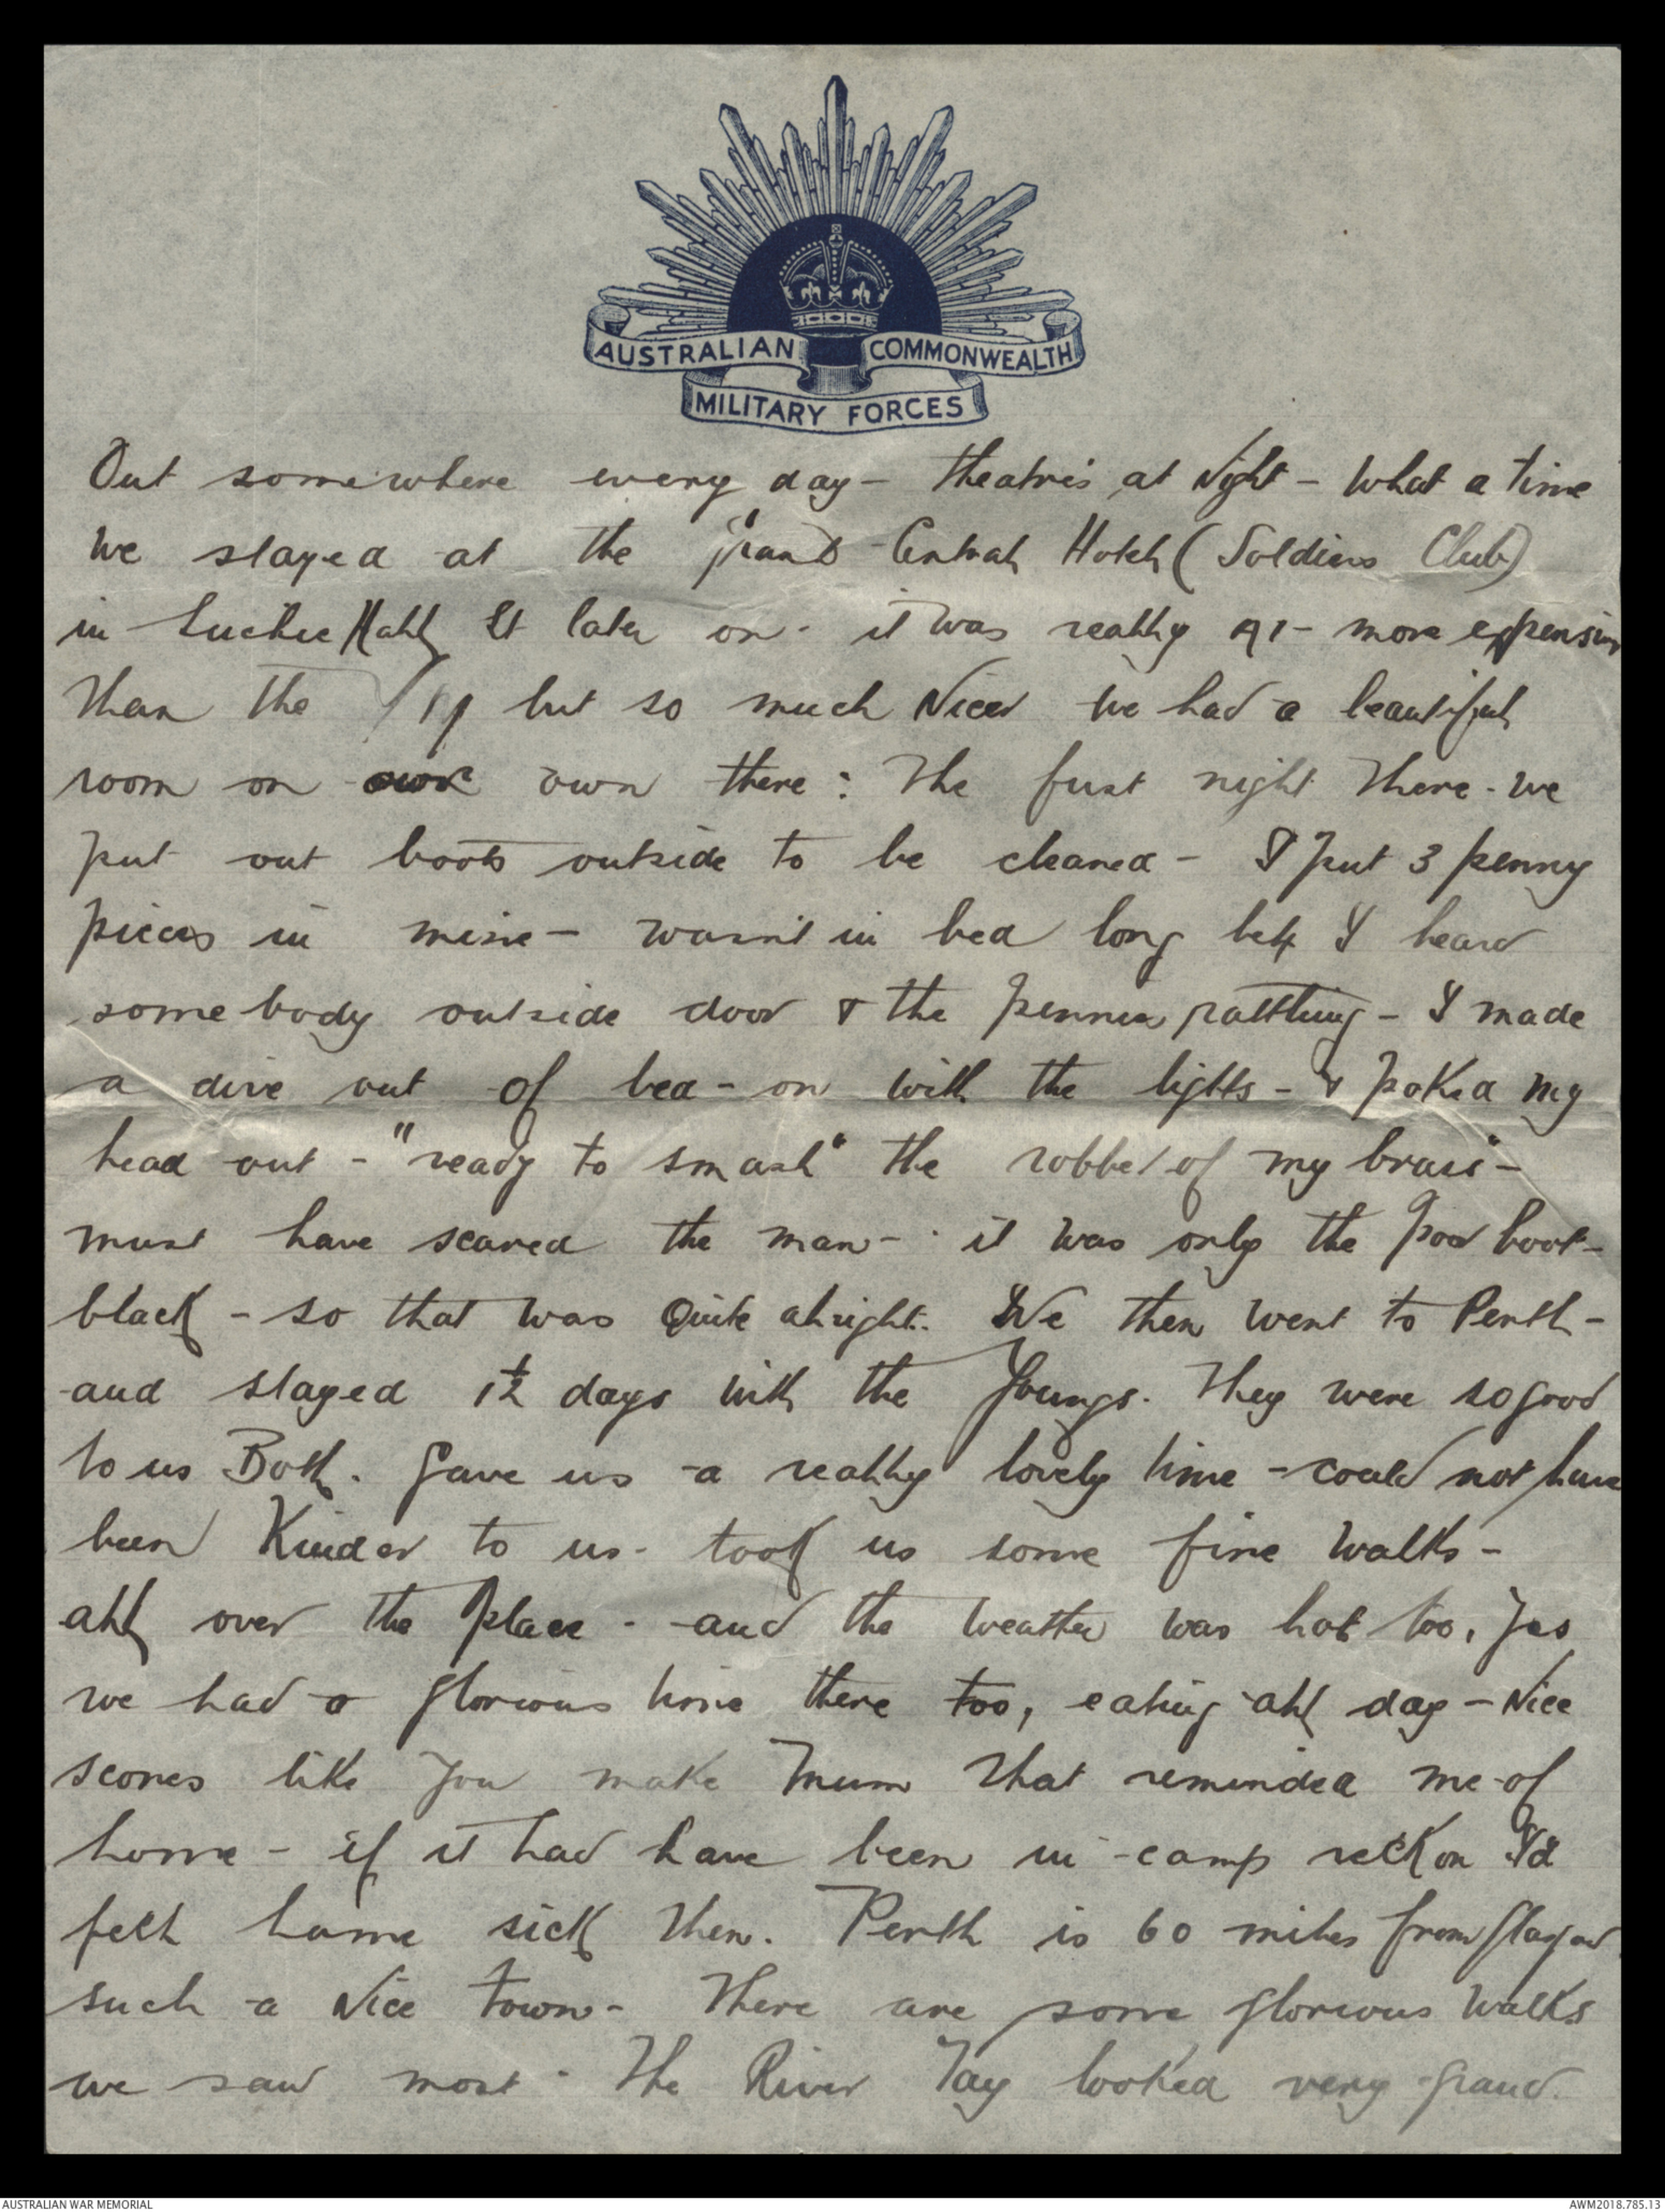 AUSTRALIAN COMMONWEALTH
MILITARY FORCES
Out somewhere every day - theatres at Night - What a time
We stayed at the Grand Central Hotel (Soldiers Club)
in St later on - it was really A1 - more expensive
than the but so much Nicer we had a beautiful
room on our own there: The first night there - we
put out boots outside to be cleaned - I put 3 penny
pieces in mine - wasn't in bed long bef I heard
somebody outside door & the pennies rattling - I made
a dive out of bed - on with the lights - & poked my
head out - "ready to smash" the robber of my brass -
must have scared the man - it was only the poor boot-
black - so that was Quite alright. We then went to Perth -
and stayed 1½ days with the Youngs. They were so good
to us Both. Gave us a really lovely time - could not have
been Kinder to us - took us some fine walks -
all over the place - and the weather was hot too, Yes
we had a glorious time there too, eating all day - Nice
scones like you make Mum that reminded me of
home - if it had have been in camp reckon I'd
felt home sick then. Perth is 60 miles from Glasgow
such a Nice town - There are some glorious Walks
we saw most - The River Tay looked very grand.
AUSTRALIAN WAR MEMORIAL
AWM2018.785.13